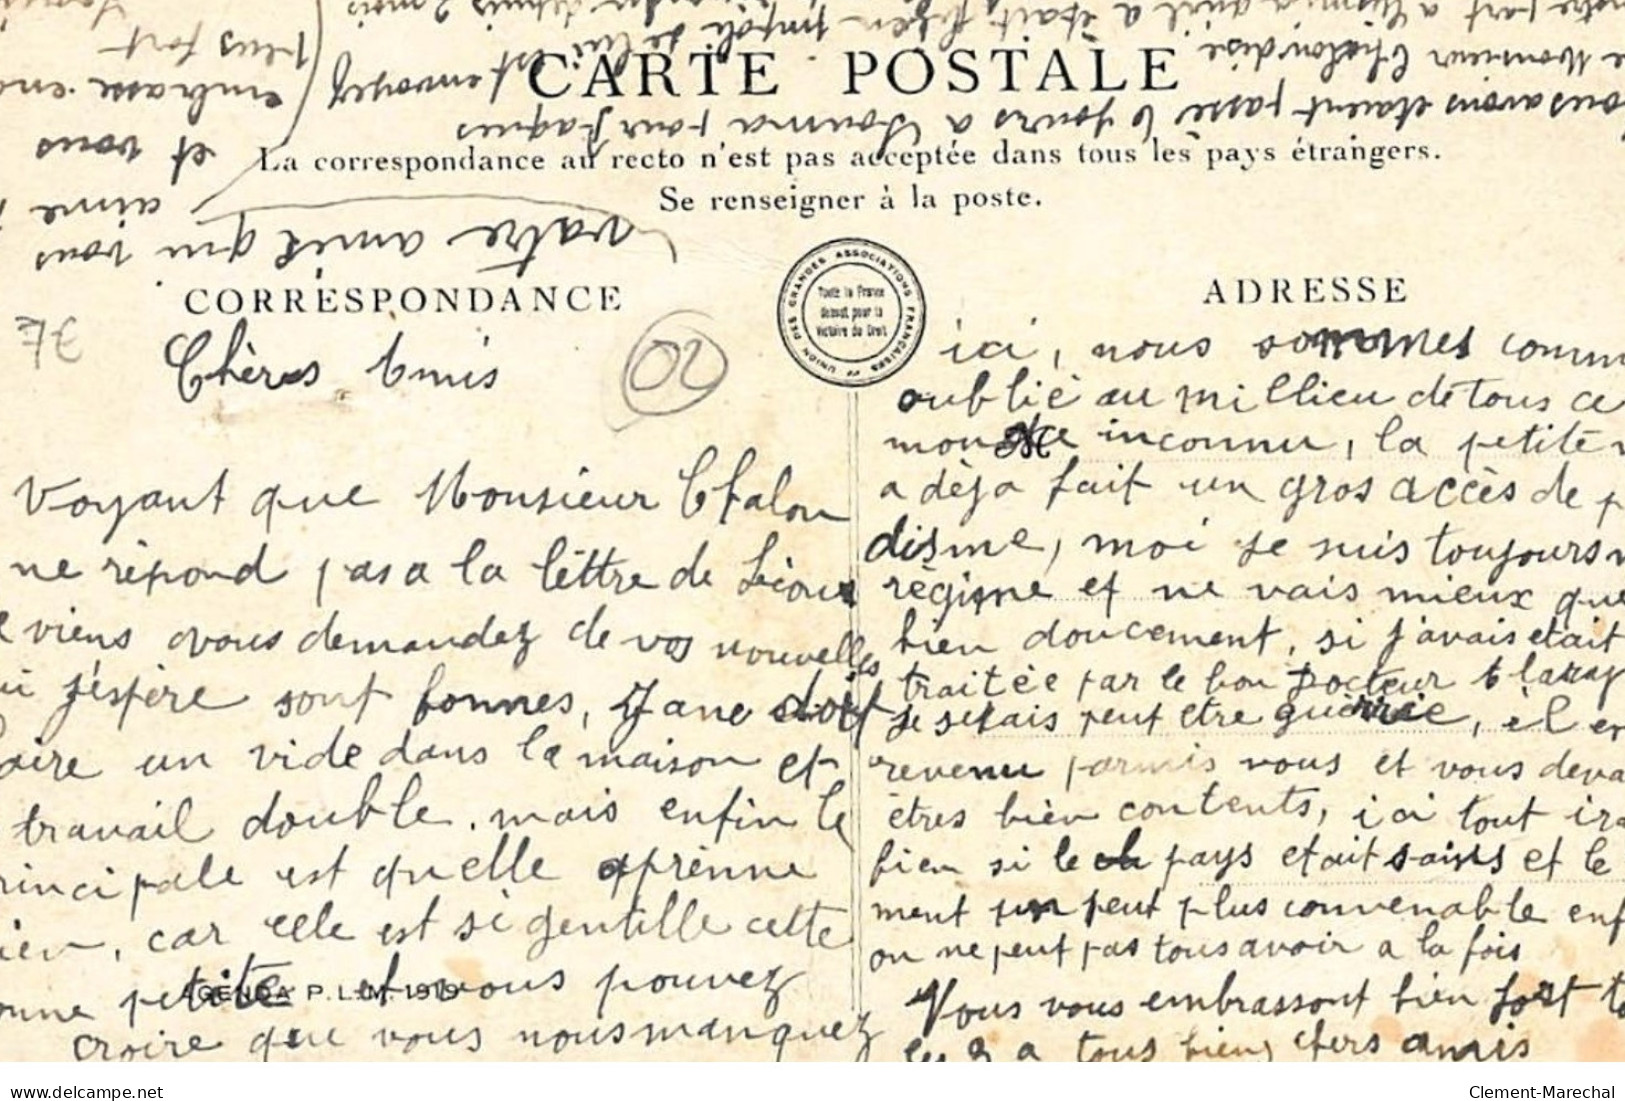 CARTE POSTALE
La correspondance au recto n'est pas acceptée dans tous les pays étrangers.
Se renseigner à la poste.
UNION DES GRANDES ASSOCIATIONS FRANÇAISES
Toute la France
debout pour la
Victoire du Droit
CORRESPONDANCE
02
Chères Amis
Voyant que Monsieur Chalon
ne répond pas a la lettre de
viens avous demandez de vos nouvelles
j'espère sont bonnes, Jane doit
aire un vide dans la maison et
travail double, mais enfin le
rincipale est quelle aprènne
ien, car elle est si gentille cette
onne petite et vous pouvez
croire que vous nous manquez
AGENDA P.L.M. 1919
ADRESSE
ici, nous sommes comm
oublié au millieu de tous ce
monde inconnu, la petite
a dèja fait un gros accès de p
disme, moi je suis toujours
règime et ne vais mieux que
bien doucement, si j'avais etait
traitée par le bon Docteur
je serais peut etre guèrrie, il e
revenu parmis vous et vous deva
ètres bien contents, ici tout ir
bien si le pays etait sains et le
ment un peut plus convenable enf
on ne peut pas tous avoir a la fois
Nous vous embrassont bien fort to
les 3 a tous bien chers amis
vous avons etaient passé 6 jours a Souma pour Jaques
votre amie qui vous
aime
et vous
embrasse enc
plus fort
delcampe.net
Clement-Marechal